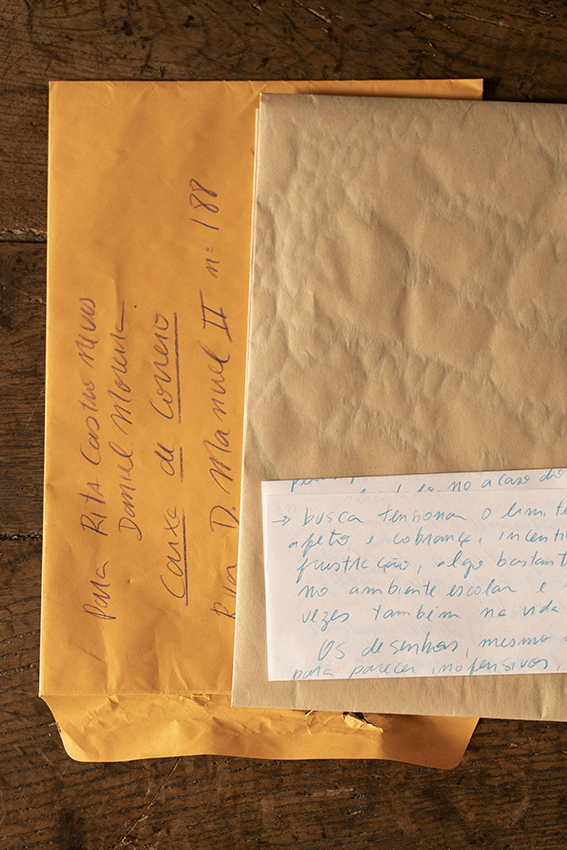 Para Rita Castro Neves
Daniel Moreira
Caixa de Correio
Rua D. Manuel II nº 188
no acaso dio
→ busca tensionar o limite
afeto e cobrança, incenti
frustração, algo bastant
no ambiente escolar e
vezes também na vida
Os desenhos, mesmo
para parecer inofensivos,